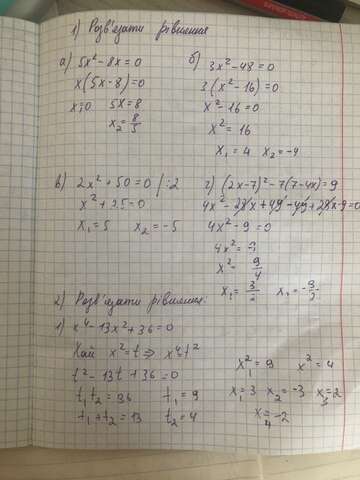 1) Розв'язати рівняння
а) 5x² - 8x = 0
x(5x - 8) = 0
x₁ = 0 5x = 8
x₂ = 8/5
б) 3x² - 48 = 0
3(x² - 16) = 0
x² - 16 = 0
x² = 16
x₁ = 4 x₂ = -4
в) 2x² + 50 = 0 / :2
x² + 25 = 0
x₁ = 5 x₂ = -5
г) (2x - 7)² - 7(7 - 4x) = 9
4x² - 28x + 49 - 49 + 28x - 9 = 0
4x² - 9 = 0
4x² = 9
x² = 9/4
x₁ = 3/2 x₁ = -3/2
2) Розв'язати рівняння:
1) x⁴ - 13x² + 36 = 0
Хай x² = t ⇒ x⁴ t²
t² - 13t + 36 = 0
t₁ t₂ = 36 t₁ = 9
t₁ + t₂ = 13 t₂ = 4
x₁² = 9 x² = 4
x₁ = 3 x₂ = -3 x₃ = 2
x₄ = -2